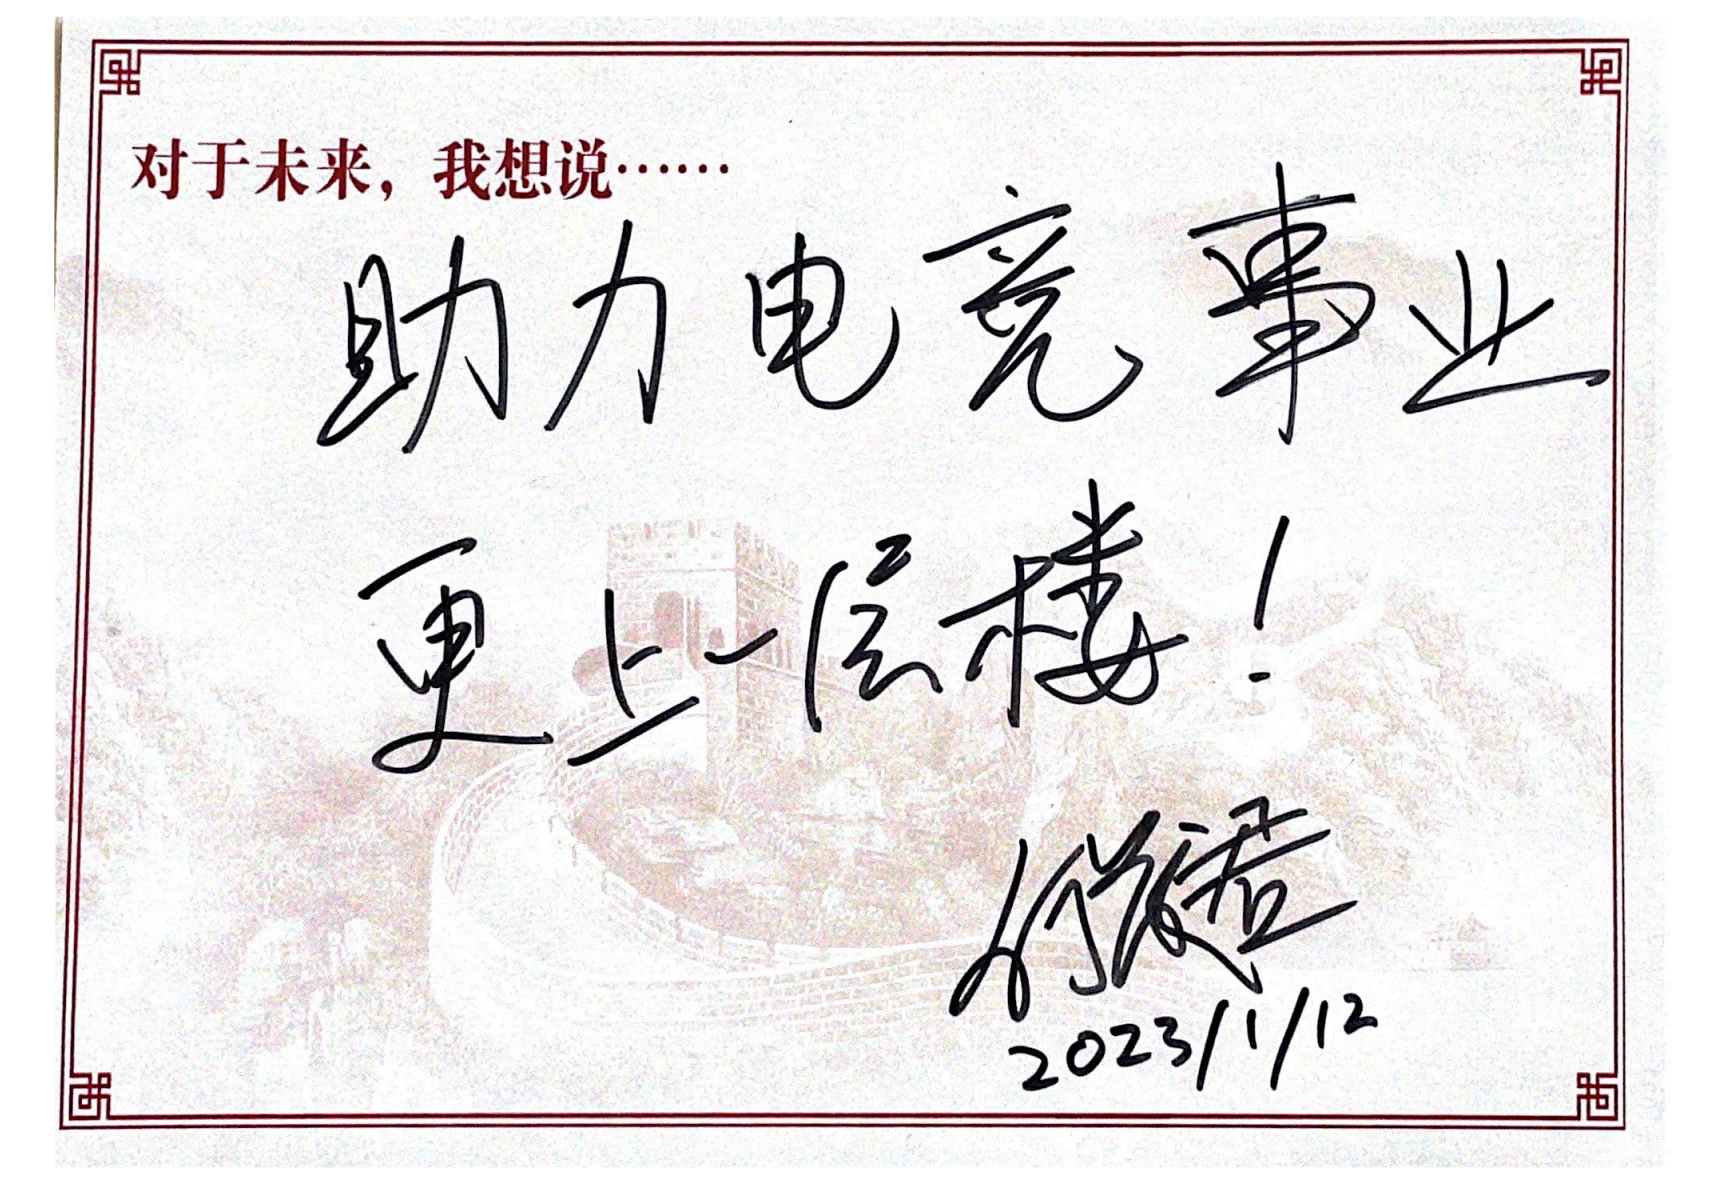 对于未来，我想说……
助力电竞事业
更上一层楼！
2023/1/12